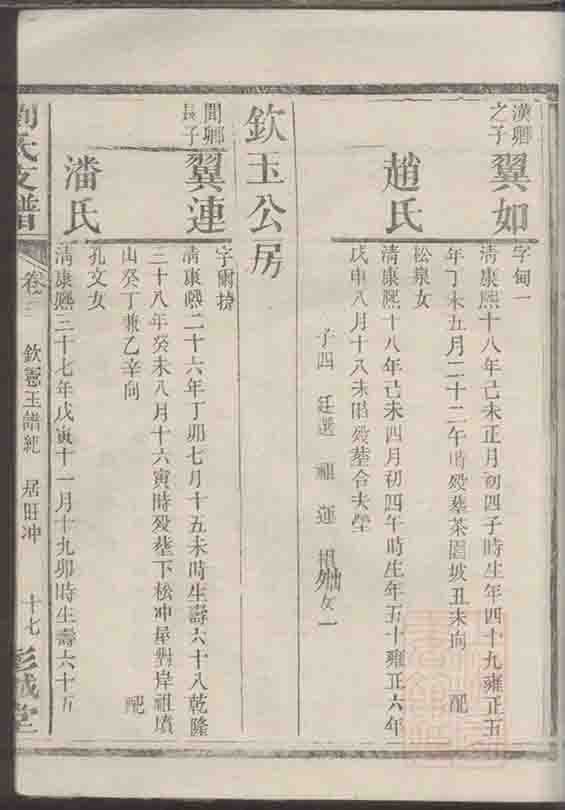 漢卿之子
翼如
字甸一
清康熙十八年己未正月初四子時生年四十九雍正五
年丁未五月二十二午時歿葬茶園坡丑未向 配
趙氏
松泉女
清康熙十八年己未四月初四午時生年五十雍正六年
戊申八月十八未時歿葬合夫塋
子四 廷選 祖 運 女一
欽玉公房
聞卿長子
翼連
字爾接
清康熙二十六年丁卯七月十五未時生壽六十八乾隆
三十八年癸未八月十六寅時歿葬下松冲屋對岸祖墳
山癸丁兼乙辛向 配
潘氏
孔文女
清康熙三十七年戊寅十一月十九卯時生壽六十五
劉氏支譜
卷三 欽憲玉譜紀 居旺冲 十七
彭城堂